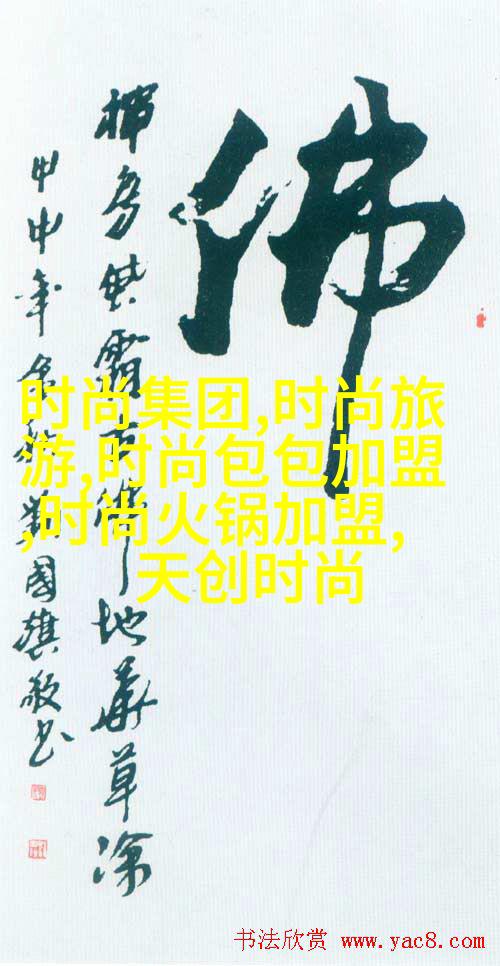 佛
霜
地華草深
甲申年金秋 國旗敬书
时尚集团,时尚旅
游,时尚包包加盟
,时尚火锅加盟,
天创时尚
书法欣赏 www.yac8.com